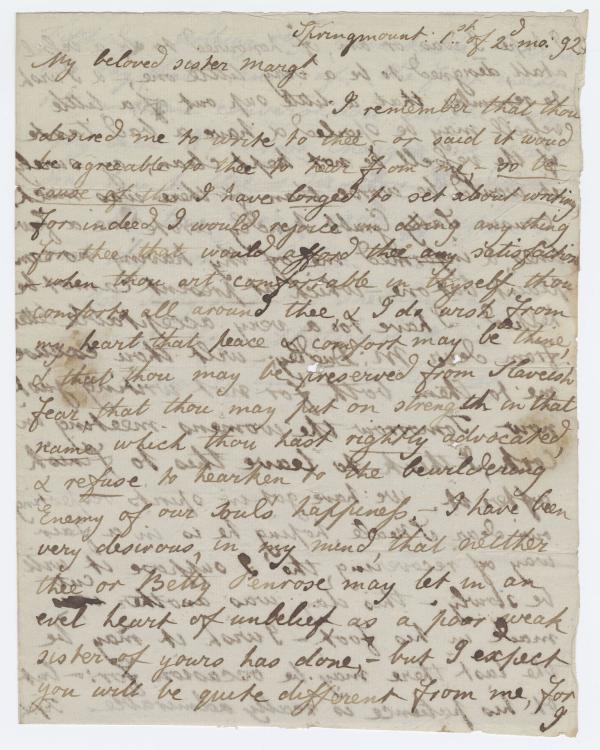 Springmount 1st of 2d mo. 92
My beloved sister Margt
I remember that thou
desired me to write to thee, - or said it woud
be agreeable to thee to hear from me, - so be-
cause of this I have longed to set about writing,
for indeed I would rejoice in doing any thing
for thee that would afford thee any satisfaction
- when thou art comfortable in thyself thou
comforts all around thee, & I do wish from
my heart that peace & comfort may be thine,
& that thou may be preserved from slaveish
fear, that thou may put on strength in that
name which thou hast rightly advocated,
& refuse to hearken to the bewildering
Enemy of our souls happiness, - I have been
very desirous, in my mind that neither
thee or Betty Penrose may let in an
evel heart of unbelief as a poor weak
sister of yours has done, - but I expect
you will be quite different from me, for
I